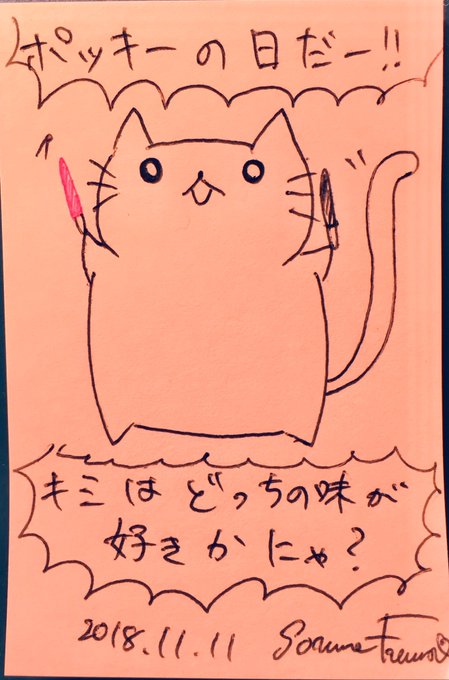 ポッキーの日だー!!
キミはどっちの味が
好きかにゃ?
2018.11.11